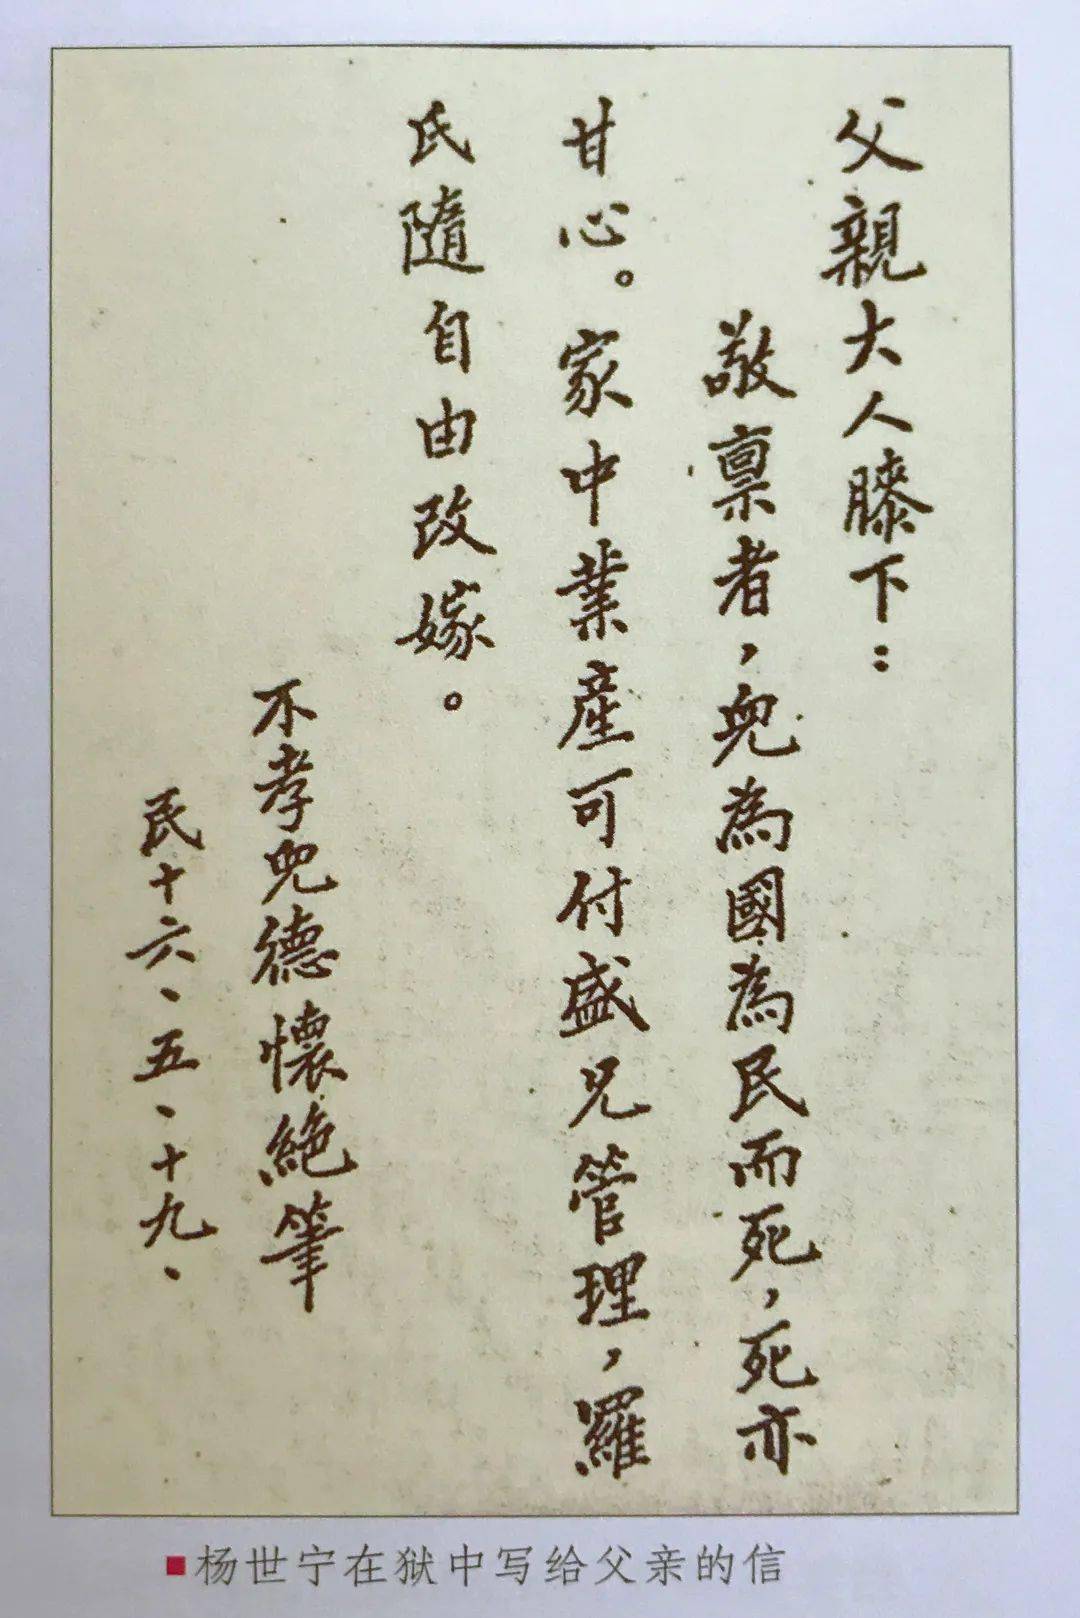 父親大人膝下：
敬禀者，兒為國為民而死，死亦
甘心。家中業產可付盛兄管理，羅
氏隨自由改嫁。
不孝兒德懷絶筆
民十六、五、十九、
杨世宁在狱中写给父亲的信